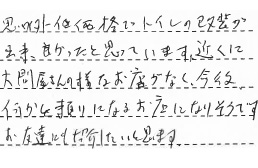 思いの外低価格でトイレの改装が
出来、良かったと思っています。近くに
大問屋さんの様なお店がなく、今後
何かと頼りになるお店になりそうです
お友達にも紹介したいと思います。